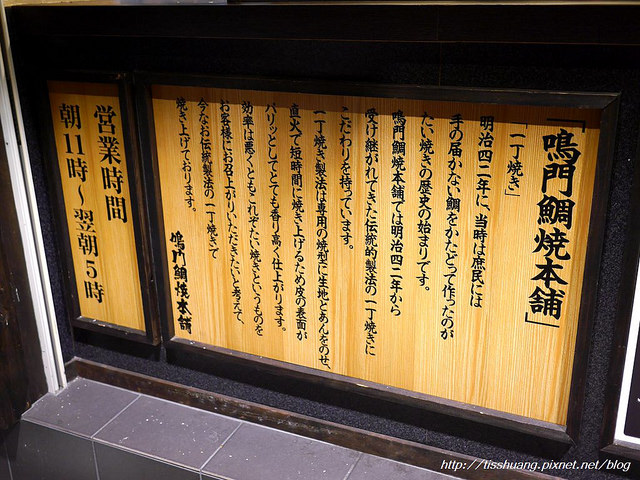 「鳴門鯛焼本舗」
「一丁焼き」
明治四二年に、当時は庶民には
手の届かない鯛をかたどって作ったのが
たい焼きの歴史の始まりです。
鳴門鯛焼本舗では明治四二年から
受け継がれてきた伝統的製法の一丁焼きに
こだわりを持っています。
一丁焼き製法は専用の焼型に生地とあんをのせ、
直火で短時間に焼き上げるため皮の表面が
パリッとしてとても香り高く仕上がります。
効率は悪くともこれぞたい焼きというものを
お客様にお召上がりいただきたいと考えて、
今なお伝統製法の一丁焼きで
焼き上げております。
鳴門鯛焼本舗
営業時間
朝11時〜翌朝5時
http://tisshuang.pixnet.net/blog